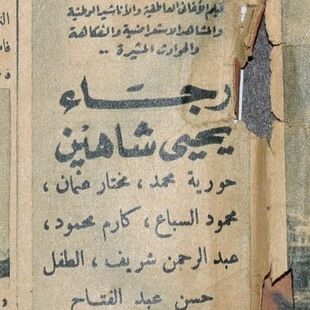 فيلم الأغاني العاطفية والأناشيد الوطنية
والمشاهد الاستعراضية والفكاهة
والحوادث المثيرة ..
رجاء
يحيى شاهين
حورية محمد ، مختار عثمان ،
محمود السباع ، كارم محمود ،
عبد الرحمن شريف ، الطفل
حسن عبد الفتاح